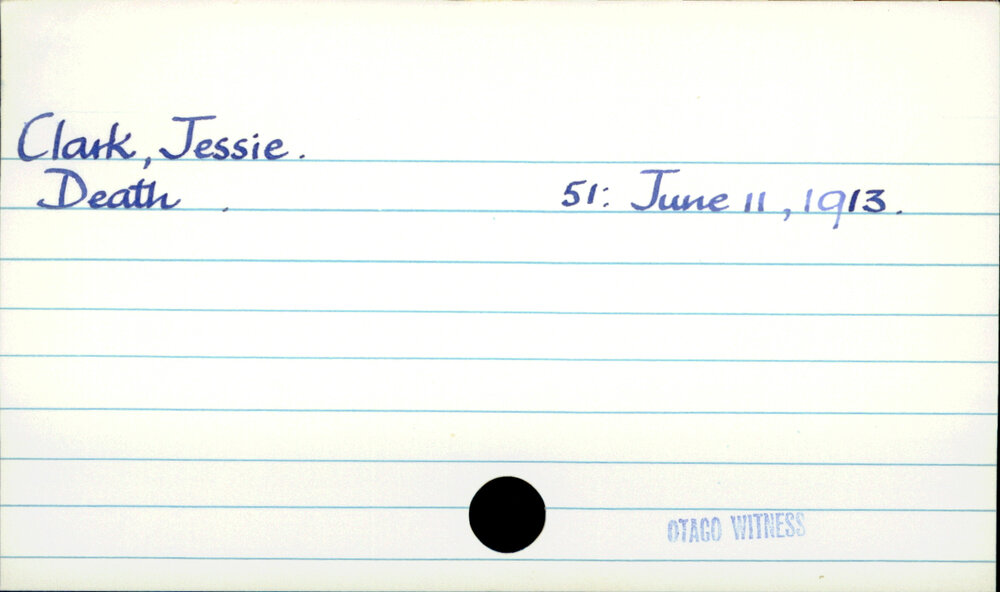 Clark, Jessie.
Death . 51: June 11, 1913.
OTAGO WITNESS